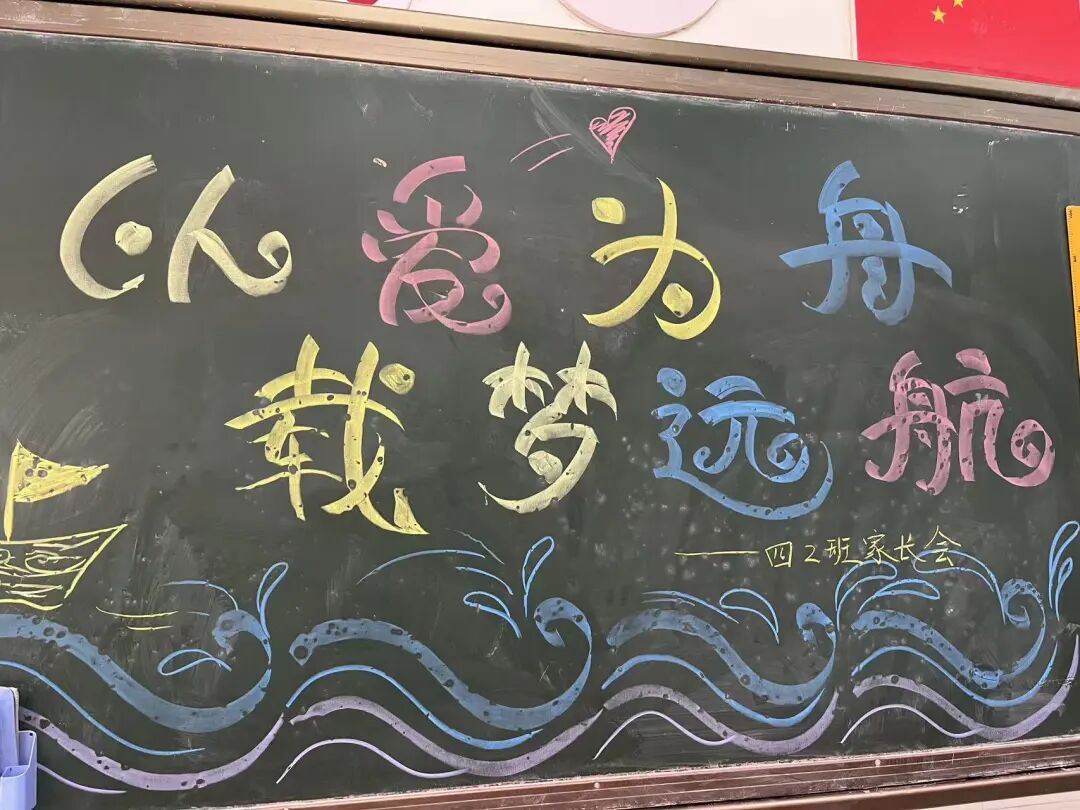 以爱为舟
载梦远航
——四2班家长会